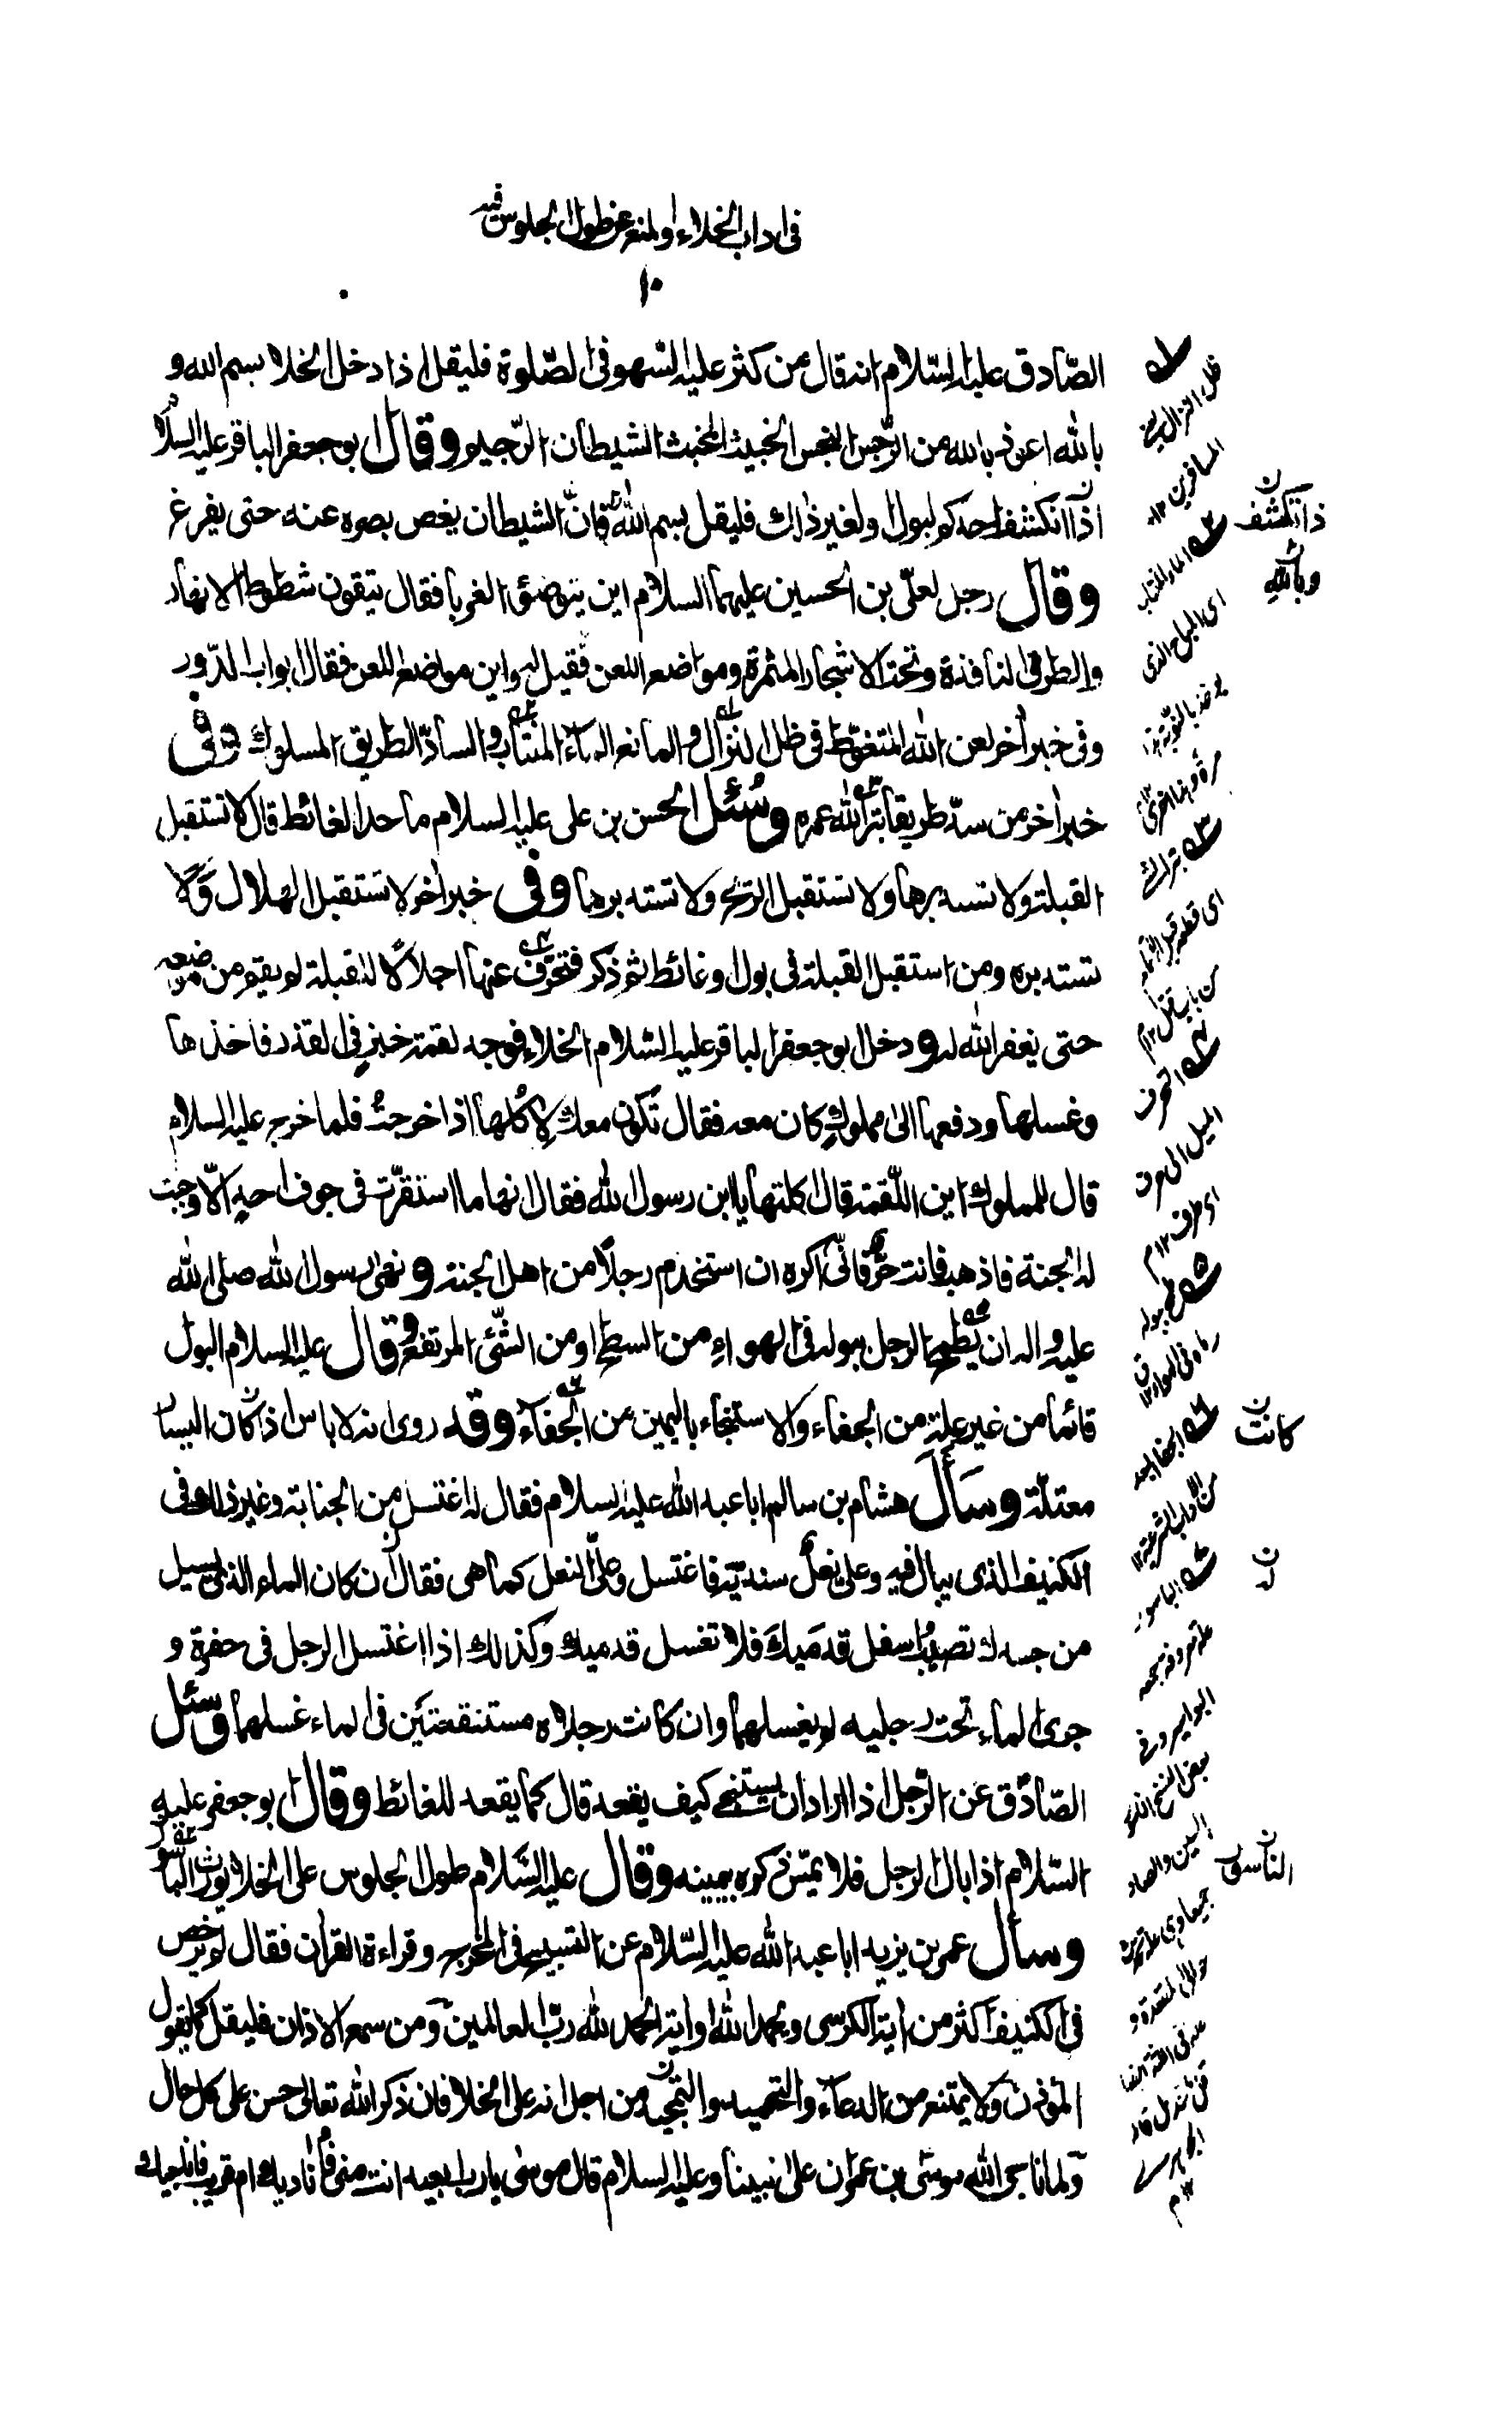 فی اداب الخلاء والمنع عن طول الجلوس فیه
١٠
الصّادق علیه السّلام انه قال من کثر علیه السّهو فی الصّلوة فلیقل اذا دخل الخلا بسم الله و
بالله اعوذ بالله من الرّجس النجس الخبیث المخبث الشیطان الرّجیم وقال ابو جعفر الباقر علیه السلام
اذا انکشف احدکم لبول او لغیر ذلک فلیقل بسم الله فانّ الشیطان یغض بصره عنه حتی یفرغ
وقال رجل لعلیّ بن الحسین علیهما السلام این یتوضئ الغربا فقال یتقون شطوط الانهار
والطرق النافذة وتحت الاشجار المثمرة ومواضع اللعن فقیل له واین مواضع اللعن فقال ابواب الدّور
وفی خبر اٰخر لعن الله المتغوّط فی ظل النزّال والمانع الماء المنتاب والسادّ الطریق المسلوک وفی
خبر اٰخر من سدّ طریقا بتر الله عمره وسُئل الحسن بن علی علیه السلام ما حد الغائط قال لا تستقبل
القبلة ولا تستدبرها ولا تستقبل الریح ولا تستدبرها وفی خبر اٰخر لا تستقبل الهلال وَلا
تستدبره ومن استقبل القبلة فی بول او غائط ثم ذکر فتحرّف عنها اجلالًا للقبلة لم یقم من موضعه
حتی یغفر الله له و دخل ابو جعفر الباقر علیه السّلام الخلاء فوجد لقمة خبز فی القذر فاخذها
وغسلها ودفعها الیٰ مملوکٍ کان معه فقال تکون معک لاٰکلها اذا خرجتُ فلما خرج علیه السلام
قال للمملوک این اللّقمة قال اکلتها یا ابن رسول الله فقال انها ما استقرّت فی جوف احدٍ الّا وجبت
له الجنة فاذهب فانت حرّ فانّی اکره ان استخدم رجلًا من اهل الجنة و نهی رسول الله صلی الله
علیه واله ان یُطمح الرجل ببوله فی الهواءِ من السطح او من الشّئ المرتفع وقال علیه السلام البول
قائما من غیر علة من الجفاء والاستنجاء بالیمین من الجفآء وقد روی انه لا باس اذا کان الیسار
معتلّة وسَأل هشام بن سالم ابا عبد الله علیه السلام فقال له اغتسل من الجنابة وغیر ذلک فی
الکنیف الذی یبال فیه وعلی نعل سندیّة فاغتسل وعلیّ النعل کما هی فقال ان کان الماء الذی یسیل
من جسدک تصیب اسفل قدمَیکَ فلا تغسل قدمیک وکذلک اذا اغتسل الرجل فی حفرة و
جری الماء تحت رجلیه لم یغسلهما وان کانت رجلاه مستنقعتَین فی الماء غسلهما وسُئل
الصّادق عن الرّجل اذا اراد ان یستنجی کیف یقعد قال کما یقعد للغائط وقال ابو جعفر علیه
السّلام اذا بال الرجل فلا یمسّ ذکره بیمینه وقال علیه السَّلام طول الجلوس علی الخلا یورث الباسور
وسأل عمر بن یزید ابا عبد الله علیه السّلام عن التسبیح فی المخرج وقراءة القراٰن فقال لم یرخص
فی الکنیف اکثر من اٰیة الکرسی و یحمد الله او اٰیة الحمد لله ربّ العالمین ومن سمع الاذان فلیقل کما یقول
المؤذن ولا یمتنع من الدعآء والتحمید والتمجید من اجل انه علی الخلا فان ذکر الله تعالیٰ حسن علی کل حال
ولما ناجی الله موسیٰ بن عمران علیٰ نبینا وعلیه السلام قال موسیٰ یا رب ابعید انت منی فاُنادیک ام قریب فاناجیک
ظل النزال ای
المسافرین ١٢
ذا تکشف
وبالله
کانت
له
الناسور